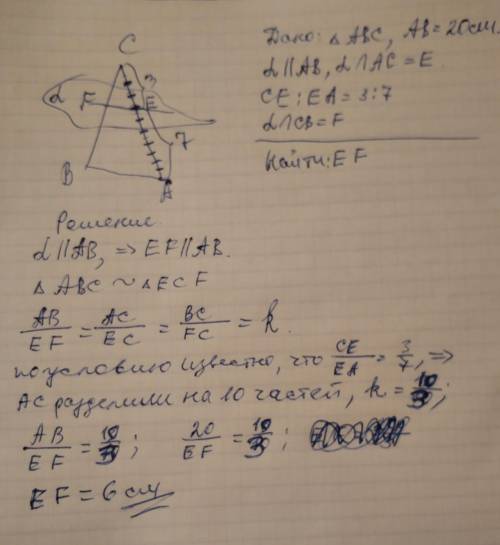 C
3
α F E
7
B
A
Дано: △ABC, AB=20см.
α||AB, α∩AC=E.
CE:EA=3:7
α∩CB=F
Найти: EF
Решение
α||AB, => EF||AB.
△ABC ~ △ECF
AB/EF = AC/EC = BC/FC = k.
по условию известно, что CE/EA = 3/7, =>
AC разделили на 10 частей, k = 10/3;
AB/EF = 10/3; 20/EF = 10/3;
EF = 6 см